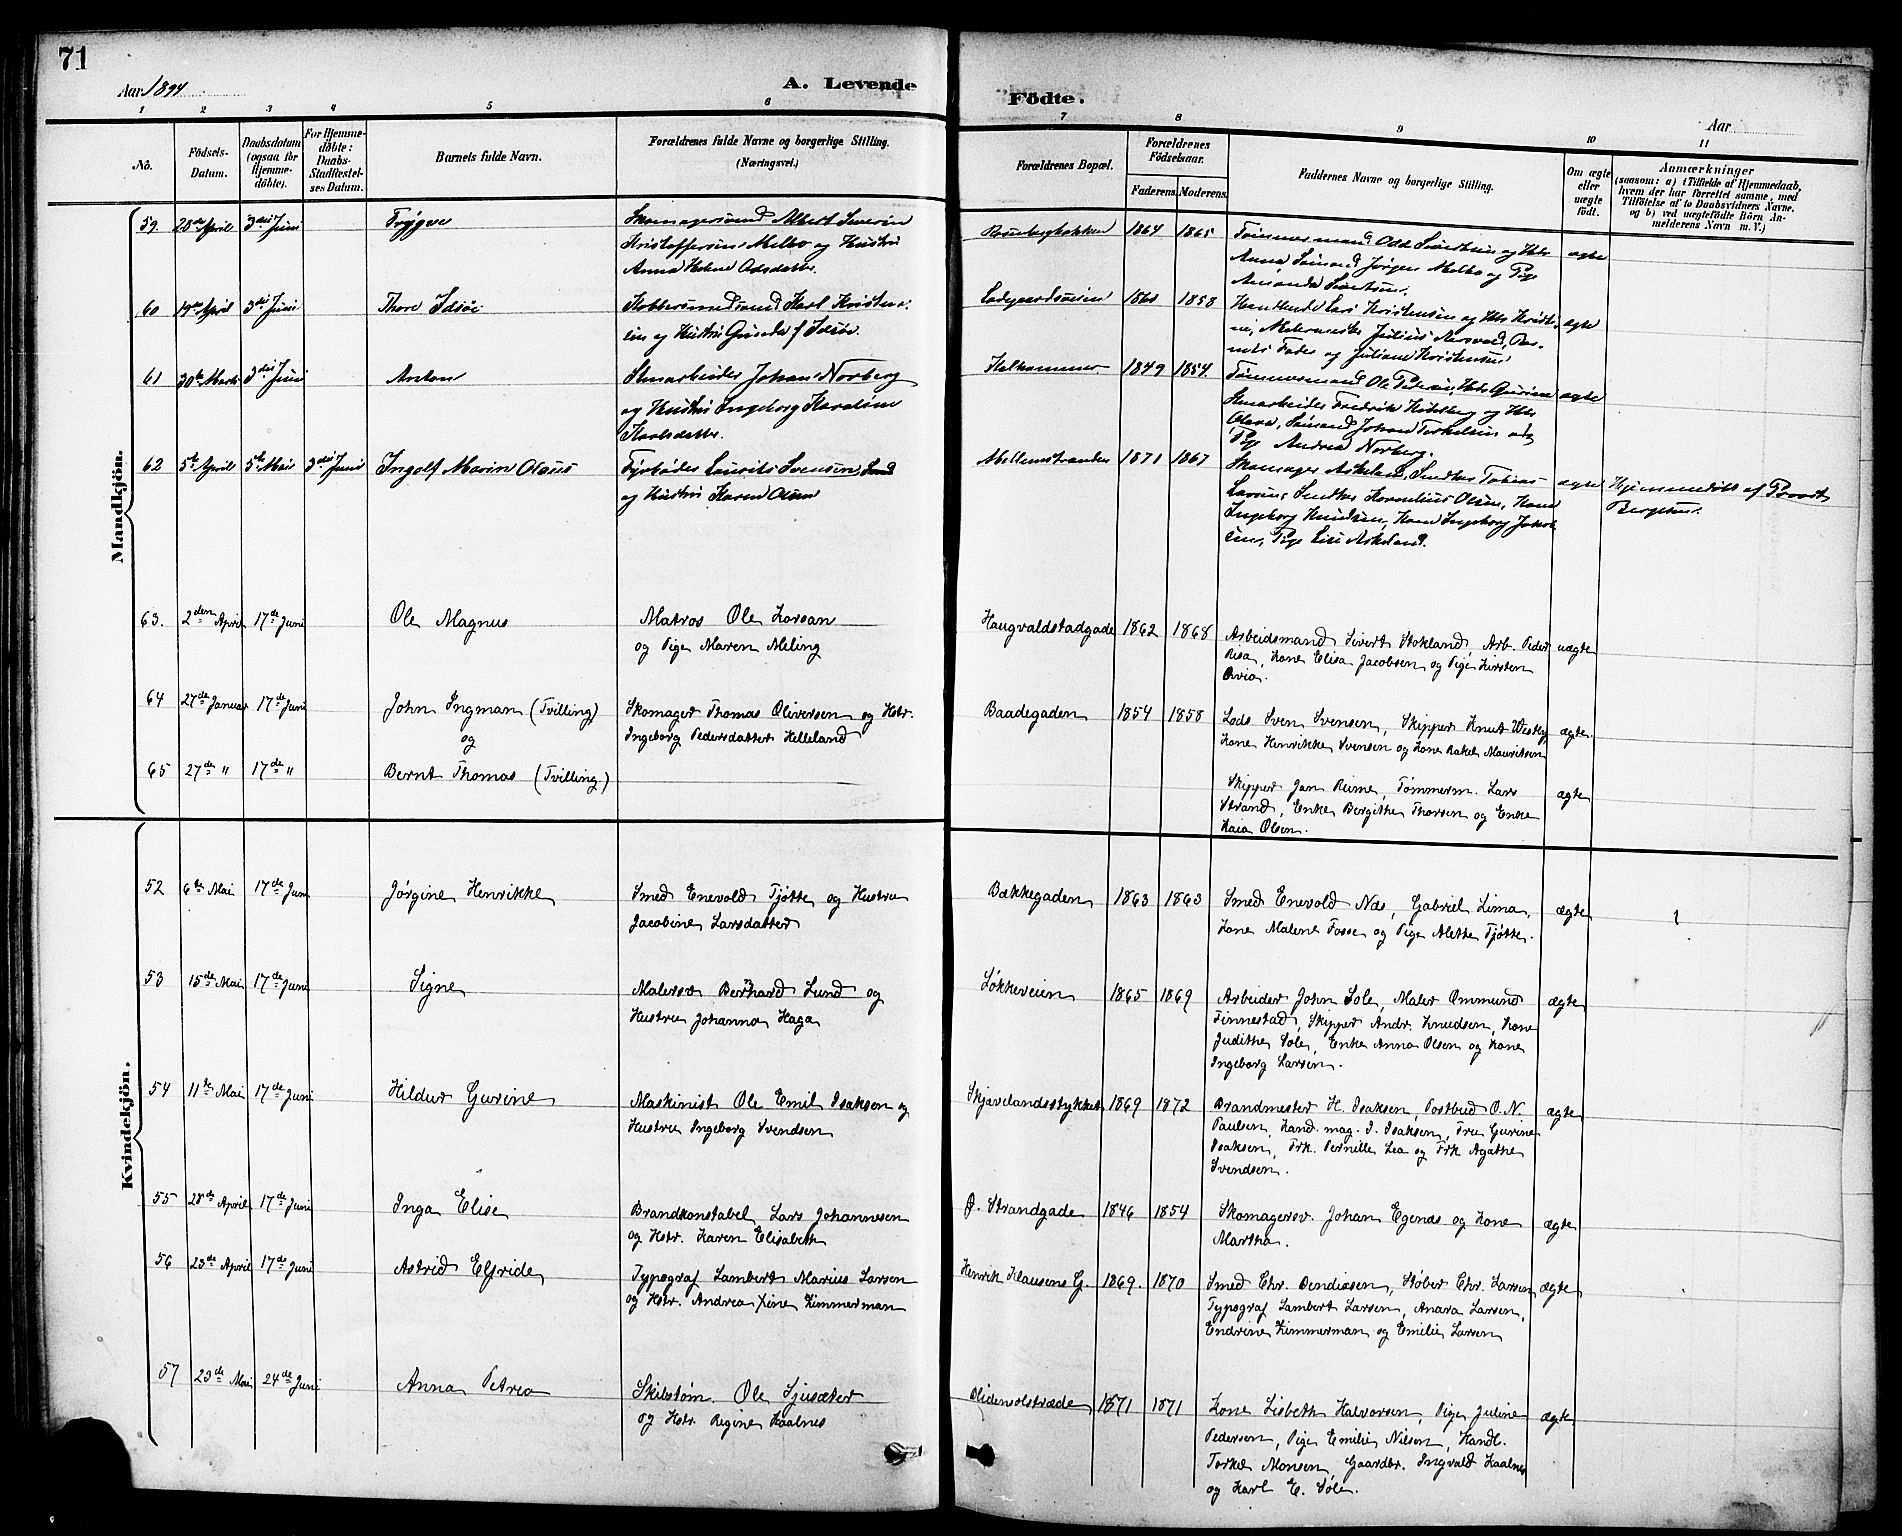 71
Aar 1894
A. Levende
Födte.
Aar
1 2 3 4 5 6 7 8 9 10 11
No.
Födsels-Datum.
Daabsdatum (ogsaa for Hjemmedöbte).
For Hjemmedöbte: Daabs-Stadfæstelses Datum.
Barnets fulde Navn.
Forældrenes fulde Navne og borgerlige Stilling.
(Næringsvei.)
Forældrenes Bopæl.
Forældrenes Födselsaar.
Faderens. Moderens.
Faddernes Navne og borgerlige Stilling.
Om ægte eller uægte födt.
Anmærkninger
(saasom: a) i Tilfælde af Hjemmedaab, hvem der har forrettet samme, med Tilföielse af to Daabsvidners Navne, og b) ved uægtefödte Börn Anmelderens Navn m. V.)
Mandkjön.
59 28de April 3die Juni Trygve Skomagersvend Albert Severin 1864 1865 Tømmermand ægte
Kristoffersen Melbo og Hustru
Anna Helene Odsdatter.
60 19de April 3die Juni Thore Idsöe Kobbersmedsvend Karl Kristen- Ladegaardsveien 1860 1858 Handlende Lars Kristensen og Hstr. Kristi- ægte
sen og Hustru Gunda f. Idsöe.
nets Fader og Juliane Kristensen.
61 30te Marts 3die Juni Anton Stenarbeider Johan Norberg Kalhammer 1849 1854. Tømmermand Ole Pedersen, ægte
og Hustru Ingeborg Karoline
Karlsdatter.
Stenarbeider Fredrik Hodelberg og Hstr.
Olava, Sömand Johan Terkelsen og
Pige Andrea Norberg.
62 5te April 5te Mai 3die Juni Ingolf Marin Olaus Fyrböder Laurits Svensen Lund Mellemstranden 1871 1867 Skomager Askeland, Snedker Tobias ægte Hjemmedöbt af Provst
og Hustru Karen Olsen
Larsen, Snedker Kornelius Olsen, Kone
Ingeborg Knudsen, Kone Ingeborg Jakob
sen, Pige Lise Askeland.
63. 2den April 17de Juni Ole Magnus Matros Ole Larsan Haugvaldstadgade 1862 1868 Arbeidsmand Sivert Stokland, Arb. Peder uægte
og Pige Maren Meling
Risa, Kone Elisa Jacobsen og Pige Kirsten
64 27de Januar 17de Juni John Ingman (Tvilling) Skomager Thomas Oliversen og Hstr. Baadegaden 1854 1858 Lods Sven Svensen, Skipper Knut Westby, ægte.
og Ingeborg Pedersdatter Helleland
Kone Henrikke Svensen og Kone Rakel Mauritsen
65 27de " 17de " Bernt Thomas (Tvilling) Skipper Jan Reime, Tømmerm. Lars ægte
Strand, Enke Bergithe Thorsen og Enke
Kaia Olsen.
Kvindekjön.
52 6te Mai 17de Juni Jørgine Henrikke Smed Enevold Tjøtte og Hustru Bækkegaden 1863 1863 Smed Enevold Næs, Gabriel Lima, ægte
Jacobine Larsdatter
Kone Malene Fosse og Pige Alette Tjøtte.
53 15de Mai 17de Juni Signe Malersv Bernhard Lund og Løkkeveien 1865 1869 Arbeider John Sole, Maler Ommund ægte
Hustru Johanna Haga
Finnestad, Skipper Andr. Knudsen, Kone
Judithe Sole, Enke Anna Olsen og Kone
Ingeborg Larsen.
54 11te Mai 17de Juni Hildur Gurine Maskinist Ole Emil Isaksen og Skjævelandsstykket 1869 1872 Brandmester H. Isaksen, Postbud O. N. ægte
Hustru Ingeborg Svendsen
Paulsen, Kand. mag. I. Isaksen, Fru Gurine
Isaksen, Frk. Pernille Lea og Frk Agathe
Svendsen.
55 28de April 17de Juni Inga Elise Brandkonstabel Lars Johannesen Ø. Strandgade 1846 1854 Skomagersv. Johan Egenæs og Kone ægte
og Hstr. Karen Elisabeth
Martha.
56 23de April 17de Juni Astrid Elfride Typograf Lambert Marius Larsen Henrik Klausens G. 1869. 1870 Smed Chr. Bendixsen, Støber Chr. Larsen ægte
og Hstr. Andrea Xine Zimmerman
Typograf Lambert Larsen, Anara Larsen,
Endrine Zimmerman og Emilie Larsen
57 23de Mai 24de Juni Anna Petrea Skibstøm. Ole Sjusæter 1871 1871 Kone Lisbeth Halvorsen, Pige Juline ægte
og Hstr. Regine Kaalnes
Pedersen, Pige Emilie Nilsen, Handl.
Torkel Monsen, Gaardbr. Ingvald Kaalnes
og Karl E. Sole.